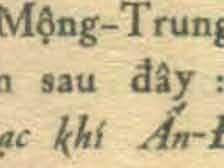 Mộng-Trung
sau đây :
khí Ấn-